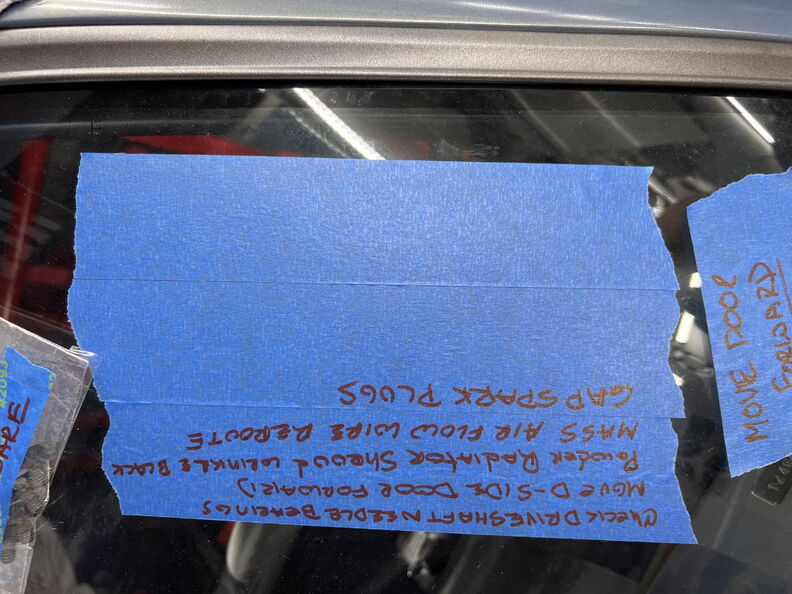 CHECK DRIVESHAFT NEEDLE BEARINGS
MOVE D-SIDE DOOR FORWARD
Powder Radiator Shroud WRINKLE BLACK
MASS AIR FLOW WIRE REROUTE
GAP SPARK PLUGS
MOVE DOOR
FORWARD
#2093